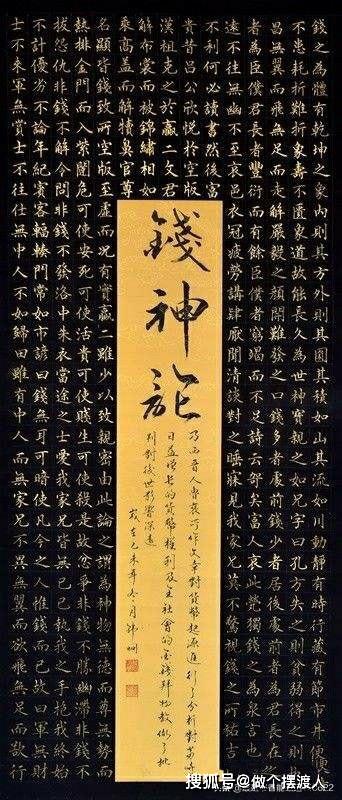 錢之為體有乾神之象內則其方外則其圓其積如山其流如川動靜有時行藏有節市井便易
不患耗折難折象壽不匱象道故能長久為世神寶親之如兄字曰孔方失之則貧弱得之則富
昌無翼而飛無足而走解嚴毅之顏開難發之口錢多者處前錢少者居後處前者為君長在後
者為臣僕君長者豐衍而有餘臣僕者窮竭而不足詩云哿矣富人哀此煢獨錢之為泉也無
遠不往無幽不至京邑衣冠疲勞講肄厭聞清談對之睡寐見我家兄莫不驚視錢之所祐吉
不利何必讀書然後富
貴昔呂公欣悅於空版
漢祖克之於嬴二文君
解布裳而被錦繡相如
乘高蓋而解犢鼻官尊
名顯皆錢致所空版至虛而況有實嬴二雖少以致親密由此論之謂為神物無德而尊無勢而
熱排金門而入紫闥危可使安死可使活貴可使賤生可使殺是故忿爭非錢不勝幽滯非錢不
拔怨仇非錢不解令問非錢不發洛中朱衣當途之士愛我家兄皆無已已執我之手抱我終始
不計優劣不論年紀賓客輻輳門常如市諺曰錢無耳可暗使凡今之人惟錢而已故曰軍無財
士不來軍無賞士不往仕無中人不如歸田雖有中人而無家兄不異無翼而欲飛無足而欲行
錢神論
乃西晉人魯褒所作文章對貨幣起源進行了分析對當時
日益增長的貨幣權利及主社會的金錢拜物教做了批
判對後世影響深遠
歲在己未年冬月
搜狐号@做个摆渡人